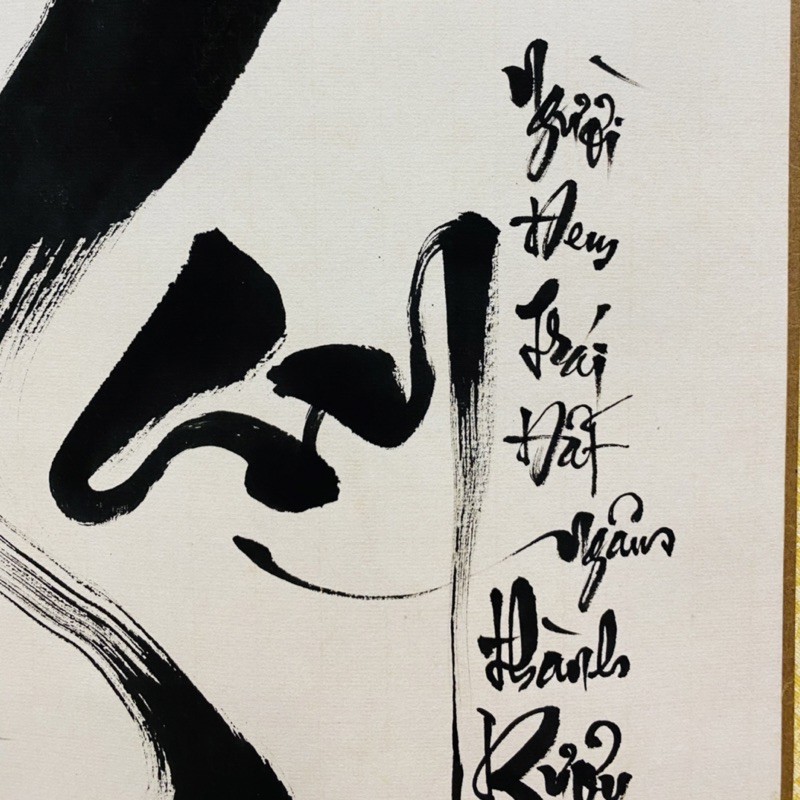 Người
Đem
Trái
Đất
Ngâm
Thành
Rượu